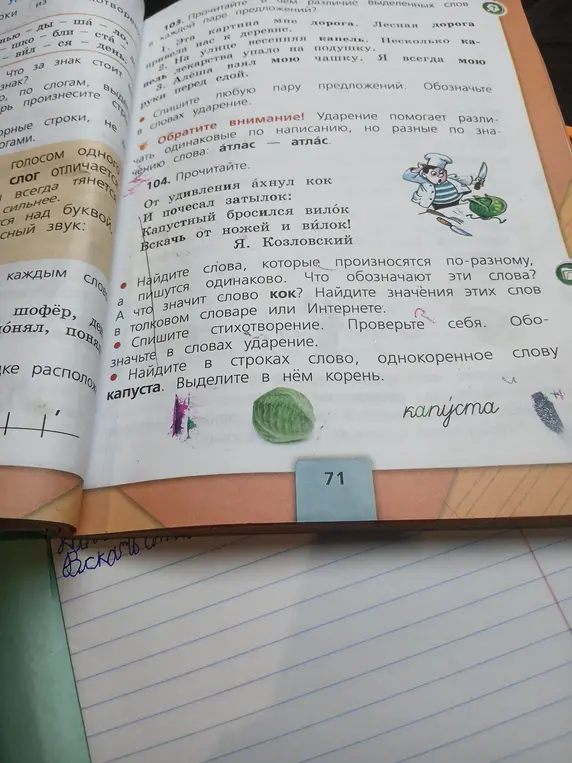 103. Прочитайте. В чём различие выделенных слов
в каждой паре предложений?
1. Эта картина мне дорога. Лесная дорога
привела нас к деревне.
2. На улице весенняя капель. Несколько ка-
пель лекарства упало на подушку.
3. Алёша взял мою чашку. Я всегда мою
руки перед едой.
• Спишите любую пару предложений. Обозначьте
в словах ударение.
Обратите внимание! Ударение помогает разли-
чать одинаковые по написанию, но разные по зна-
чению слова: а́тлас — атла́с.
104. Прочитайте.
От удивления а́хнул кок
И почесал затылок:
Капустный бросился вило́к
Вскачь от ножей и ви́лок!
Я. Козловский
• Найдите слова, которые произносятся по-разному,
а пишутся одинаково. Что обозначают эти слова?
А что значит слово кок? Найдите значе́ния этих слов
в толковом словаре или Интернете.
• Спишите стихотворение. Проверьте себя. Обо-
значьте в словах ударение.
• Найдите в строках слово, однокоренное слову
капуста. Выделите в нём корень.
капу́ста
71
ды — ша — ло,
шко — бли — ста
вил — ся — день
Что за знак стоит
знак?
по слогам,
произнесите
строки, не
голосом одно
слог отличается
всегда тянется
сильнее.
над буквой,
звук:
каждым
шофёр,
по́нял,
располож
Вскачь